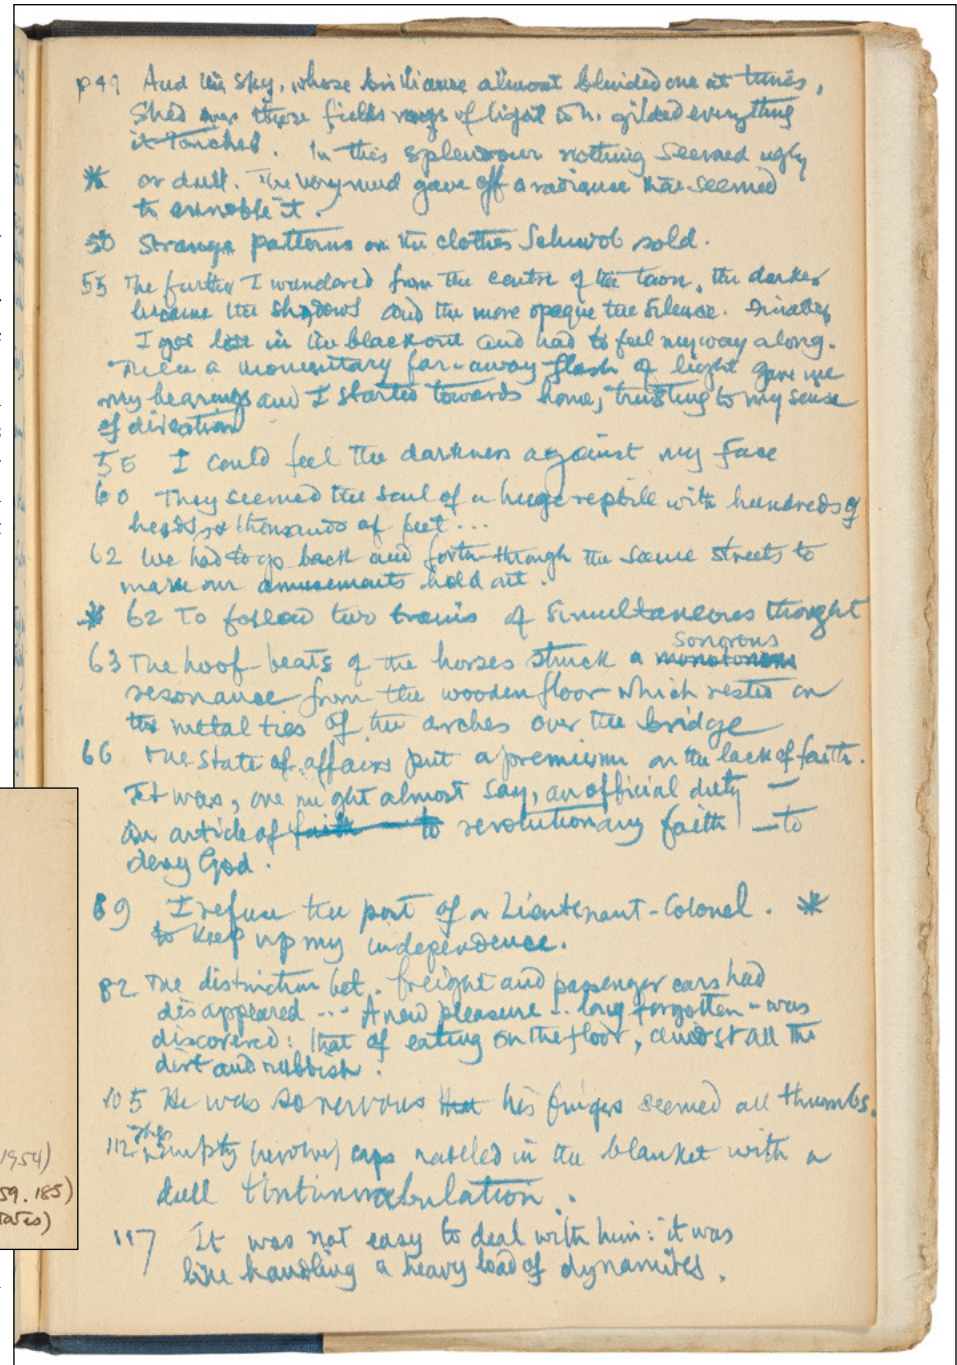 p49 And the sky, whose brilliance almost blinded one at times,
shed over these fields rays of light wh. gilded everything
it touched. In this splendour nothing seemed ugly
* or dull. The very mud gave off a radiance that seemed
to ennoble it.
50 Strange patterns on the clothes Schwob sold.
55 The further I wandered from the centre of the town, the darker
became the shadows and the more opaque the silence. Finally
I got lost in the blackout and had to feel my way along.
Then a momentary far-away flash of light gave me
my bearings and I started towards home, trusting to my sense
of direction
55 I could feel the darkness against my face
60 They seemed the soul of a huge reptile with hundreds of
heads & thousands of feet ...
62 We had to go back and forth through the same streets to
make our amusements hold out.
* 62 To follow two trains of simultaneous thought
sonorous
63 The hoof-beats of the horses struck a monotonous
resonance from the wooden floor which rested on
the metal ties of the arches over the bridge
66 The state of affairs put a premium on the lack of faith.
It was, one might almost say, an official duty —
an article of faith to revolutionary faith — to
deny God.
89 I refuse the post of a Lieutenant-Colonel. *
to keep up my independence.
82 The distinction bet. freight and passenger cars had
disappeared ... A new pleasure .. long forgotten - was
discovered: that of eating on the floor, amidst all the
dirt and rubbish.
105 He was so nervous that his fingers seemed all thumbs.
The
112 Empty (revolver) caps rattled in the blanket with a
dull tintinnabulation.
117 It was not easy to deal with him: it was
like handling a heavy load of dynamites.
1954)
59.185)